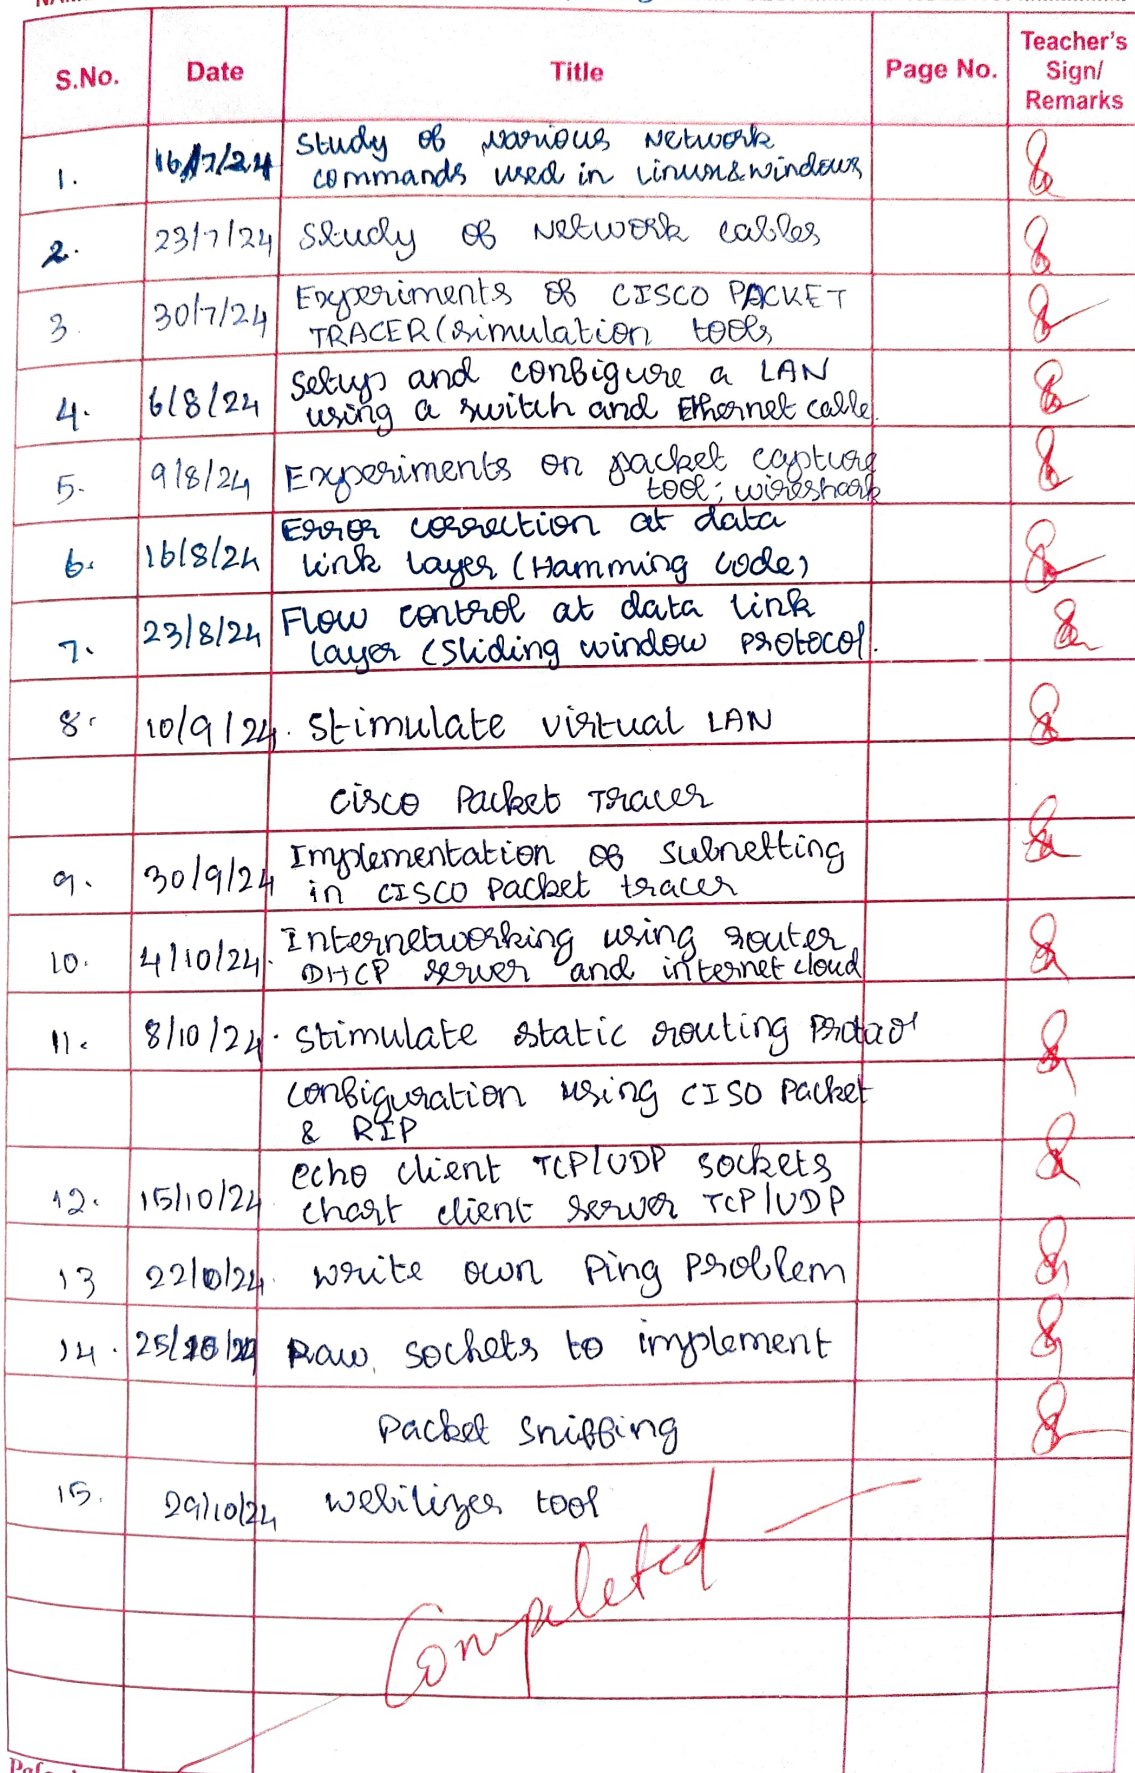 S.No. Date Title Page No. Teacher's Sign/ Remarks
1. 16/7/24 Study of various Network
commands used in Linux&windows
2. 23/7/24 Study of Network cables
3. 30/7/24 Experiments of CISCO PACKET
TRACER(simulation tools
4. 6/8/24 Setup and configure a LAN
using a switch and Ethernet calle.
5. 9/8/24 Experiments on packet capture
tool; wireshark
6. 16/8/24 Error correction at data
link layer (Hamming code)
7. 23/8/24 Flow control at data link
layer (Sliding window protocol.
8. 10/9/24. Stimulate virtual LAN
cisco Packet Tracer
9. 30/9/24 Implementation of subnetting
in CISCO packet tracer
10. 4/10/24. Internetworking using router,
DHCP server and internet cloud
11. 8/10/24. stimulate static routing
configuration using CISO Packet
& RIP
12. 15/10/24 echo client TCP/UDP sockets
chart client server TCP/UDP
13 22/10/24. write own Ping Problem
14. Raw sockets to implement
Packet Sniffing
15. 29/10/24 webilizer tool
Completed